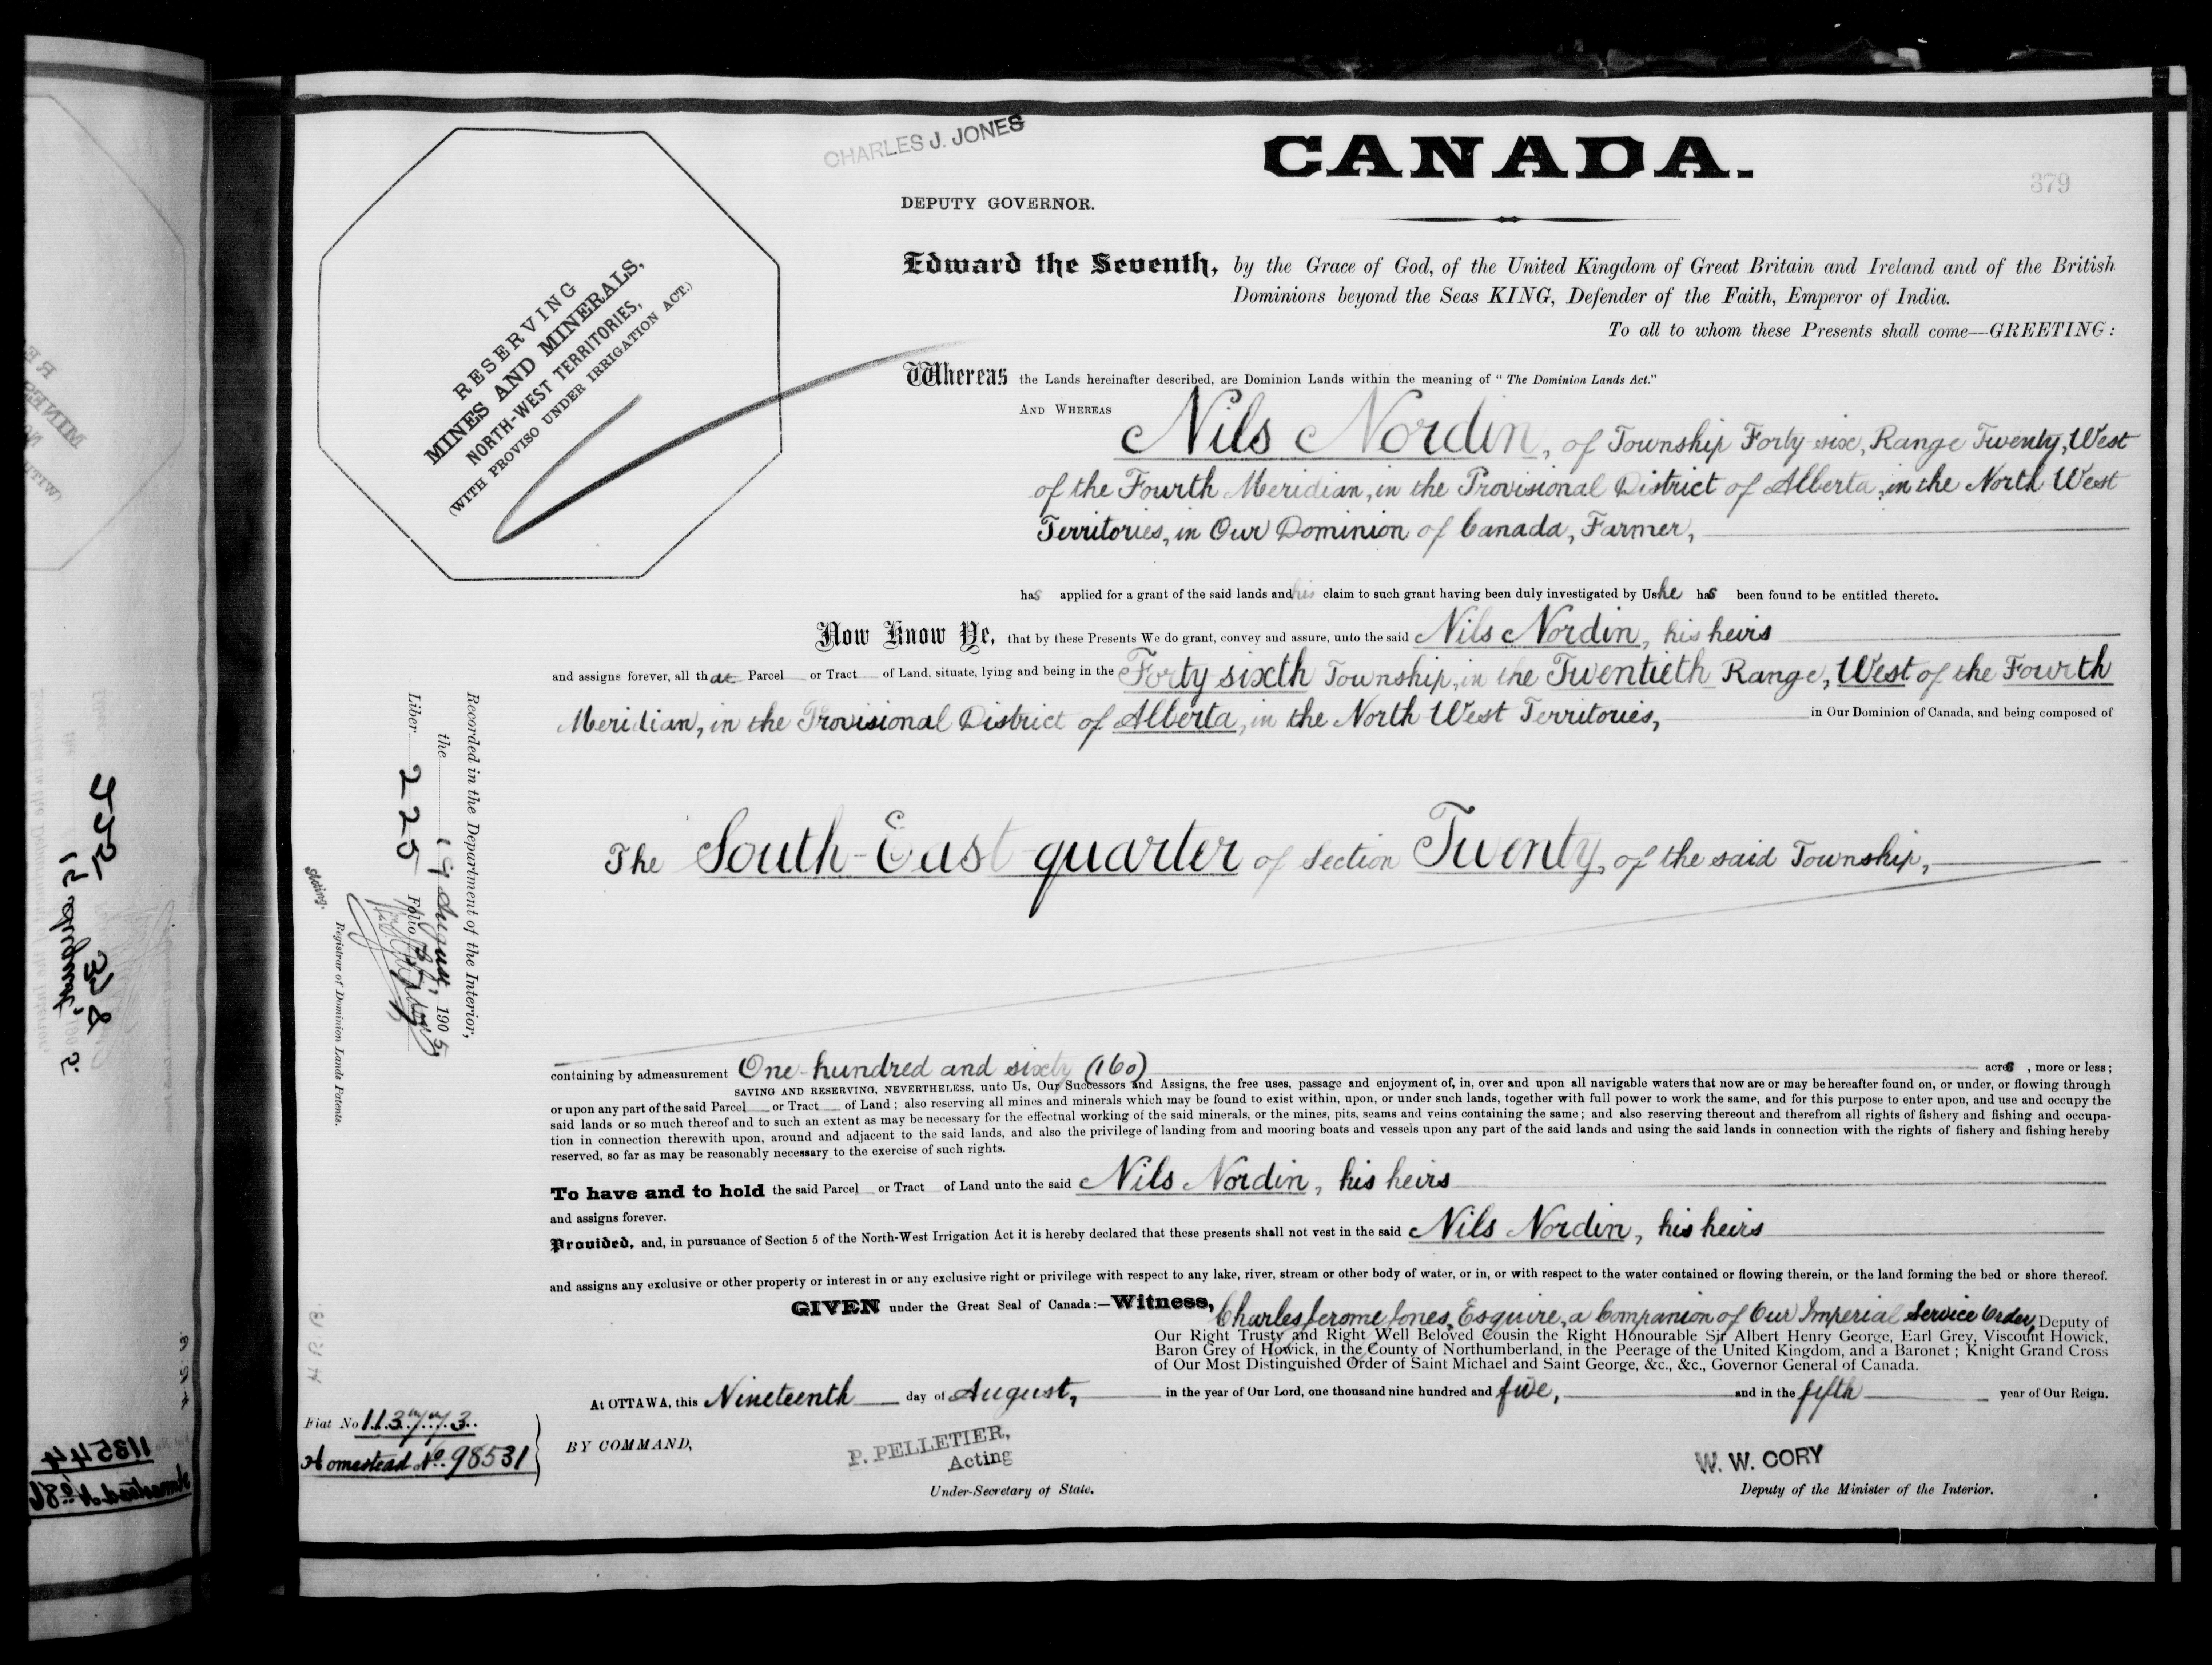 CHARLES J. JONES
CANADA.
379
DEPUTY GOVERNOR.
RESERVING
MINES AND MINERALS,
NORTH-WEST TERRITORIES,
(WITH PROVISO UNDER IRRIGATION ACT.)
Edward the Seventh, by the Grace of God, of the United Kingdom of Great Britain and Ireland and of the British
Dominions beyond the Seas KING, Defender of the Faith, Emperor of India.
To all to whom these Presents shall come—GREETING:
Whereas the Lands hereinafter described, are Dominion Lands within the meaning of "The Dominion Lands Act."
AND WHEREAS Nils Nordin, of Township Forty-six, Range Twenty, West
of the Fourth Meridian, in the Provisional District of Alberta, in the North West
Territories, in Our Dominion of Canada, Farmer,
has applied for a grant of the said lands and his claim to such grant having been duly investigated by Us he has been found to be entitled thereto.
Now Know Ye, that by these Presents We do grant, convey and assure, unto the said Nils Nordin, his heirs
and assigns forever, all that Parcel or Tract of Land, situate, lying and being in the Forty sixth Township, in the Twentieth Range, West of the Fourth
Meridian, in the Provisional District of Alberta, in the North West Territories, in Our Dominion of Canada, and being composed of
The South-East quarter of Section Twenty, of the said Township,
containing by admeasurement One hundred and sixty (160) acres, more or less;
SAVING AND RESERVING, NEVERTHELESS, unto Us, Our Successors and Assigns, the free uses, passage and enjoyment of, in, over and upon all navigable waters that now are or may be hereafter found on, or under, or flowing through
or upon any part of the said Parcel or Tract of Land; also reserving all mines and minerals which may be found to exist within, upon, or under such lands, together with full power to work the same, and for this purpose to enter upon, and use and occupy the
said lands or so much thereof and to such an extent as may be necessary for the effectual working of the said minerals, or the mines, pits, seams and veins containing the same; and also reserving thereout and therefrom all rights of fishery and fishing and occupa-
tion in connection therewith upon, around and adjacent to the said lands, and also the privilege of landing from and mooring boats and vessels upon any part of the said lands and using the said lands in connection with the rights of fishery and fishing hereby
reserved, so far as may be reasonably necessary to the exercise of such rights.
To have and to hold the said Parcel or Tract of Land unto the said Nils Nordin, his heirs
and assigns forever.
Provided, and, in pursuance of Section 5 of the North-West Irrigation Act it is hereby declared that these presents shall not vest in the said Nils Nordin, his heirs
and assigns any exclusive or other property or interest in or any exclusive right or privilege with respect to any lake, river, stream or other body of water, or in, or with respect to the water contained or flowing therein, or the land forming the bed or shore thereof.
GIVEN under the Great Seal of Canada:—Witness, Charles Jerome Jones, Esquire, a Companion of Our Imperial Service Order, Deputy of
Our Right Trusty and Right Well Beloved Cousin the Right Honourable Sir Albert Henry George, Earl Grey, Viscount Howick,
Baron Grey of Howick, in the County of Northumberland, in the Peerage of the United Kingdom, and a Baronet; Knight Grand Cross
of Our Most Distinguished Order of Saint Michael and Saint George, &c., &c., Governor General of Canada.
At OTTAWA, this Nineteenth day of August, in the year of Our Lord, one thousand nine hundred and five, and in the fifth year of Our Reign.
BY COMMAND,
P. PELLETIER,
Acting
Under-Secretary of State.
W. W. CORY
Deputy of the Minister of the Interior.
Recorded in the Department of the Interior,
the 19 August, 1905
Liber 225 Folio
Acting. Registrar of Dominion Lands Patents.
Fiat No 113773
Homestead No. 98531